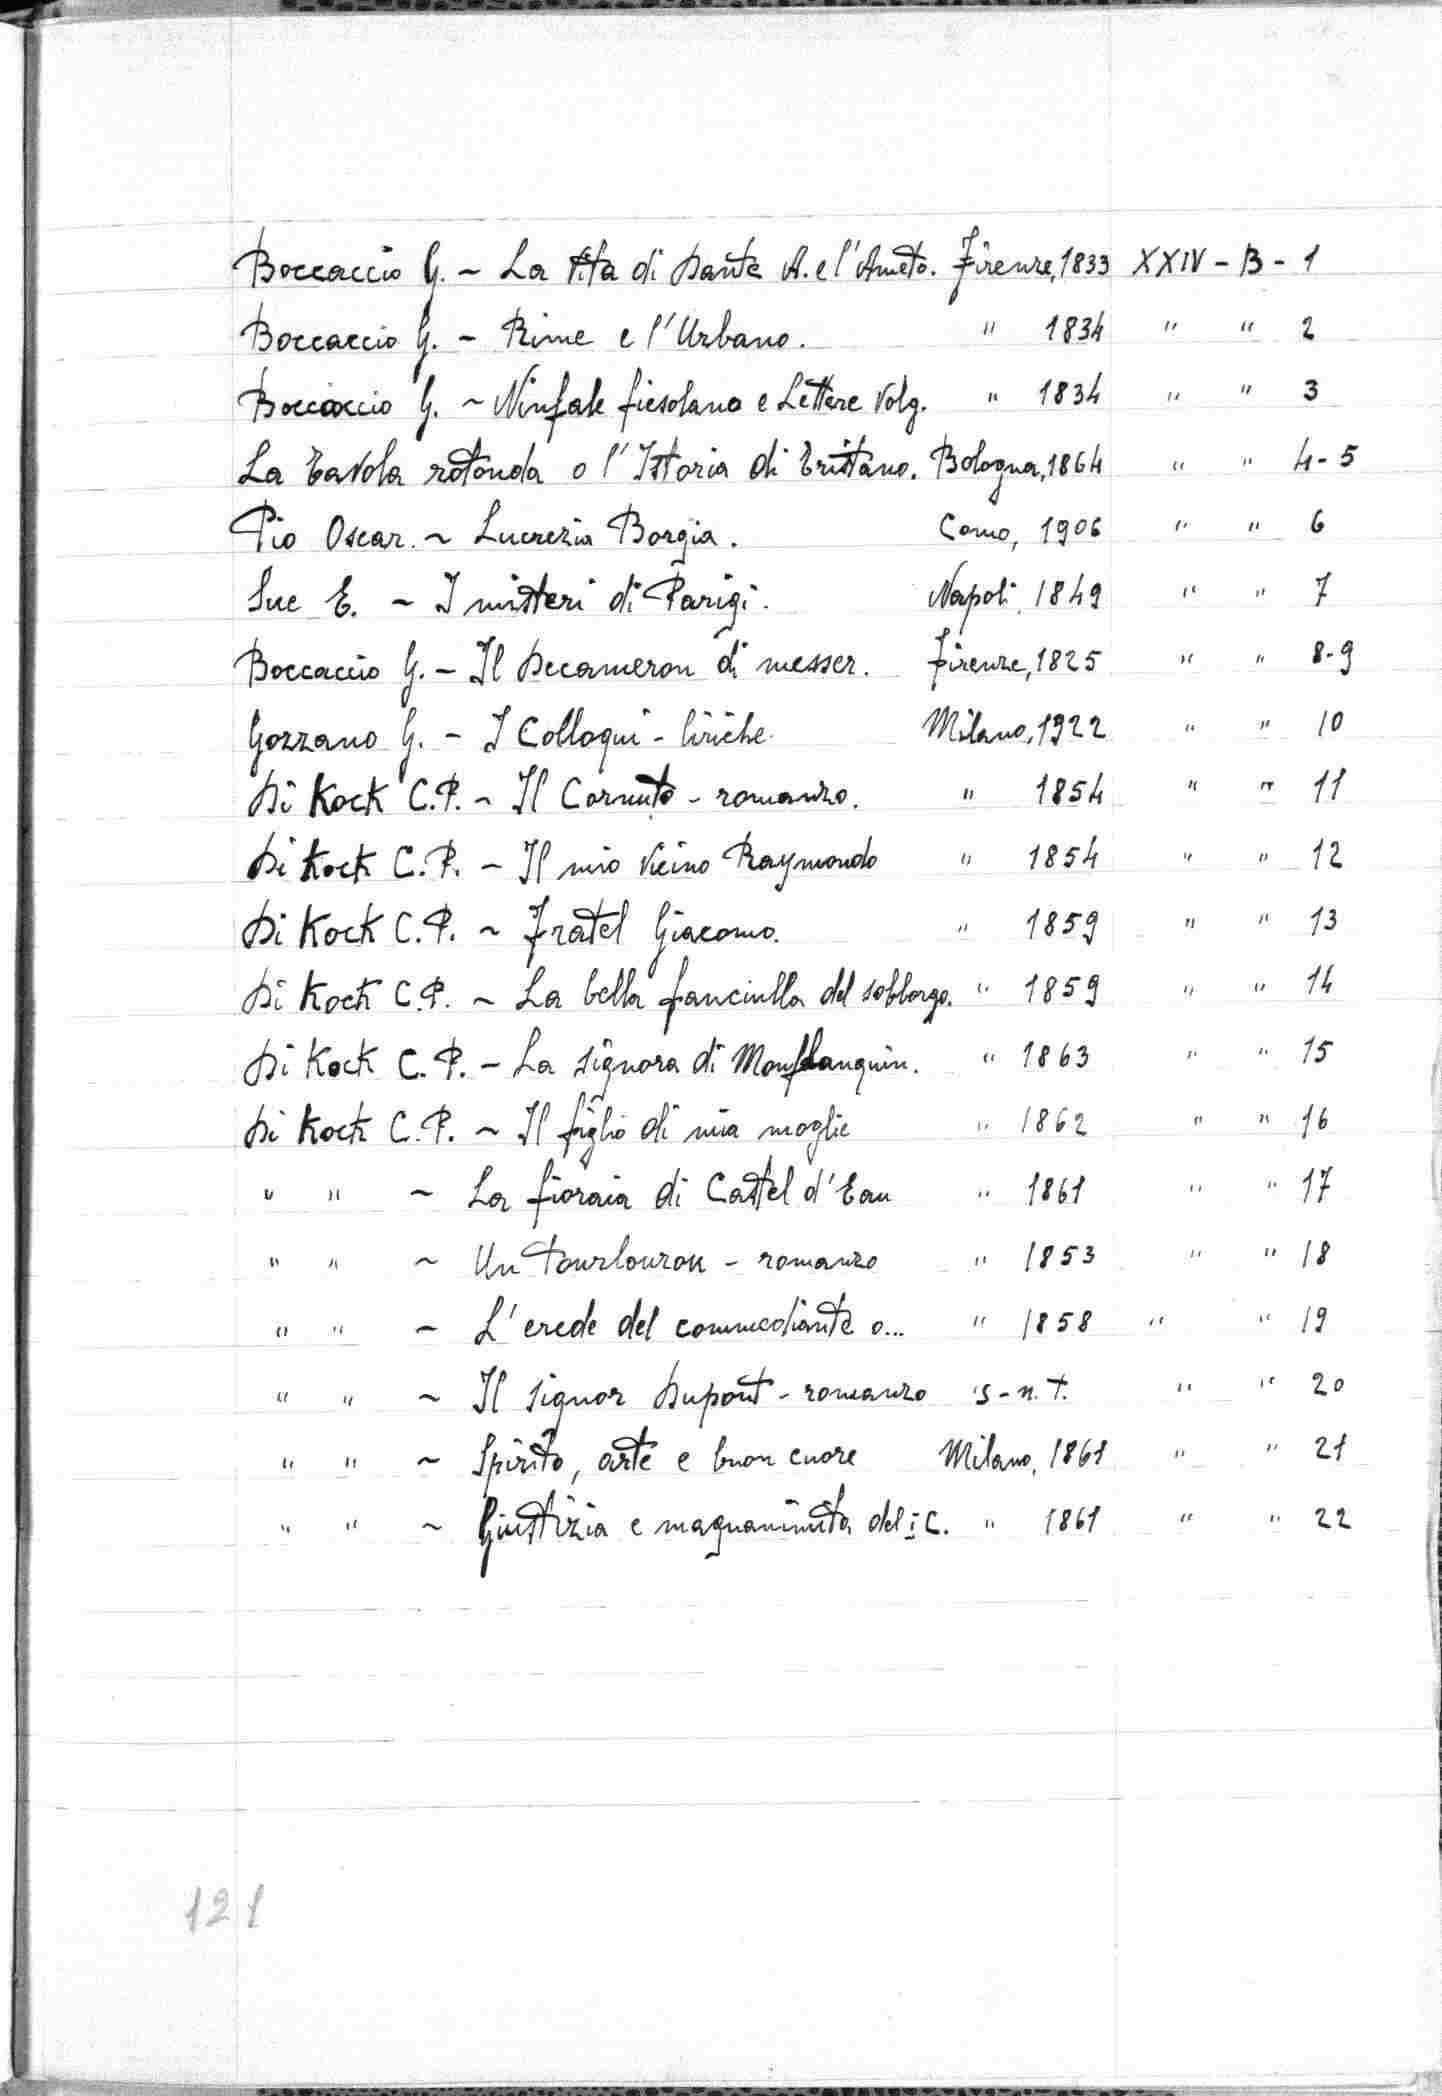 Boccaccio G. ~ La Vita di Dante A. e l'Ameto. Firenze, 1833 XXIV - B - 1
Boccaccio G. - Rime e l'Urbano. " 1834 " " 2
Boccaccio G. ~ Ninfale fiesolano e Lettere Volg. " 1834 " " 3
La Tavola rotonda o l'Istoria di Tristano. Bologna, 1864 " " 4-5
Pio Oscar. ~ Lucrezia Borgia. Como, 1906 " " 6
Sue E. ~ I misteri di Parigi. Napoli, 1849 " " 7
Boccaccio G. - Il Decameron di messer. Firenze, 1825 " " 8-9
Gozzano G. - I Colloqui - liriche. Milano, 1922 " " 10
Di Kock C.P. ~ Il Cornuto - romanzo. " 1854 " " 11
Di Kock C.P. - Il mio vicino Raymondo " 1854 " " 12
Di Kock C.P. ~ Fratel Giacomo. " 1859 " " 13
Di Kock C.P. ~ La bella fanciulla del sobborgo. " 1859 " " 14
Di Kock C.P. - La signora di Monflanquin. " 1863 " " 15
Di Kock C.P. ~ Il figlio di mia moglie " 1862 " " 16
" " ~ La fioraia di Castel d'Eau " 1861 " " 17
" " ~ Un Tourlourou - romanzo " 1853 " " 18
" " - L'erede del commediante o... " 1858 " " 19
" " ~ Il signor Dupont - romanzo s - n. t. " " 20
" " ~ Spirito, arte e buon cuore Milano, 1861 " " 21
" " ~ Giustizia e magnanimità del i C. " 1861 " " 22
121